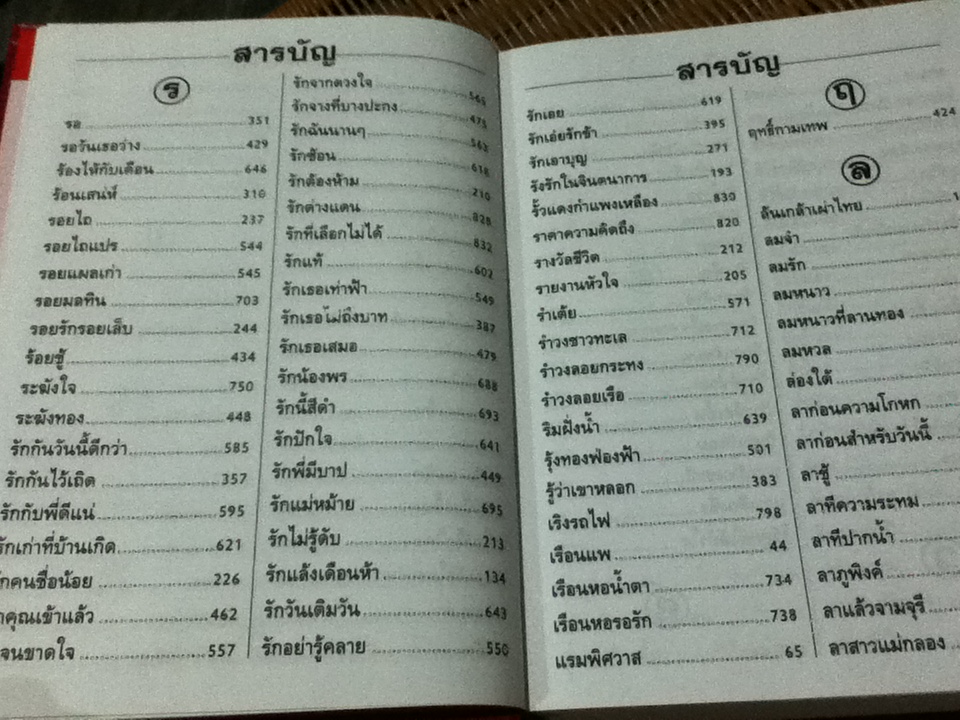 สารบัญ
ร
รอ 351
รอวันเธอว่าง 429
ร้องไห้กับเดือน 646
ร้อนเสน่ห์ 310
รอยไถ 237
รอยไถแปร 544
รอยแผลเก่า 545
รอยมลทิน 703
รอยรักรอยเล็บ 244
ร้อยชู้ 434
ระฆังใจ 750
ระฆังทอง 448
รักกันวันนี้ดีกว่า 585
รักกันไว้เถิด 357
รักกับพี่ดีแน่ 595
รักเก่าที่บ้านเกิด 621
รักคนชื่อน้อย 226
คุณเข้าแล้ว 462
จนขาดใจ 557
รักจากดวงใจ 565
รักจางที่บางปะกง 475
รักฉันนานๆ 563
รักซ้อน 618
รักต้องห้าม 210
รักต่างแดน 828
รักที่เลือกไม่ได้ 832
รักแท้ 602
รักเธอเท่าฟ้า 549
รักเธอไม่ถึงบาท 387
รักเธอเสมอ 479
รักน้องพร 688
รักนี้สีดำ 693
รักปักใจ 641
รักพี่มีบาป 449
รักแม่หม้าย 695
รักไม่รู้ดับ 213
รักแล้งเดือนห้า 134
รักวันเติมวัน 643
รักอย่ารู้คลาย 550
สารบัญ
รักเอย 619
รักเอ่ยรักข้า 395
รักเอาบุญ 271
รังรักในจินตนาการ 193
รั้วแดงกำแพงเหลือง 830
ราคาความคิดถึง 820
รางวัลชีวิต 212
รายงานหัวใจ 205
รำเต้ย 571
รำวงชาวทะเล 712
รำวงลอยกระทง 790
รำวงลอยเรือ 710
ริมฝั่งน้ำ 639
รุ้งทองฟ่องฟ้า 501
รู้ว่าเขาหลอก 383
เริงรถไฟ 798
เรือนแพ 44
เรือนหอน้ำตา 734
เรือนหอรอรัก 738
แรมพิศวาส 65
ฤ
ฤทธิ์กามเทพ 424
ล
ล้นเกล้าเผ่าไทย
ลมจ๋า
ลมรัก
ลมหนาว
ลมหนาวที่ลานทอง
ลมหวล
ล่องใต้
ลาก่อนความโกหก
ลาก่อนสำหรับวันนี้
ลาชู้
ลาทีความระทม
ลาทีปากน้ำ
ลาภูพิงค์
ลาแล้วจามจุรี
ลาสาวแม่กลอง